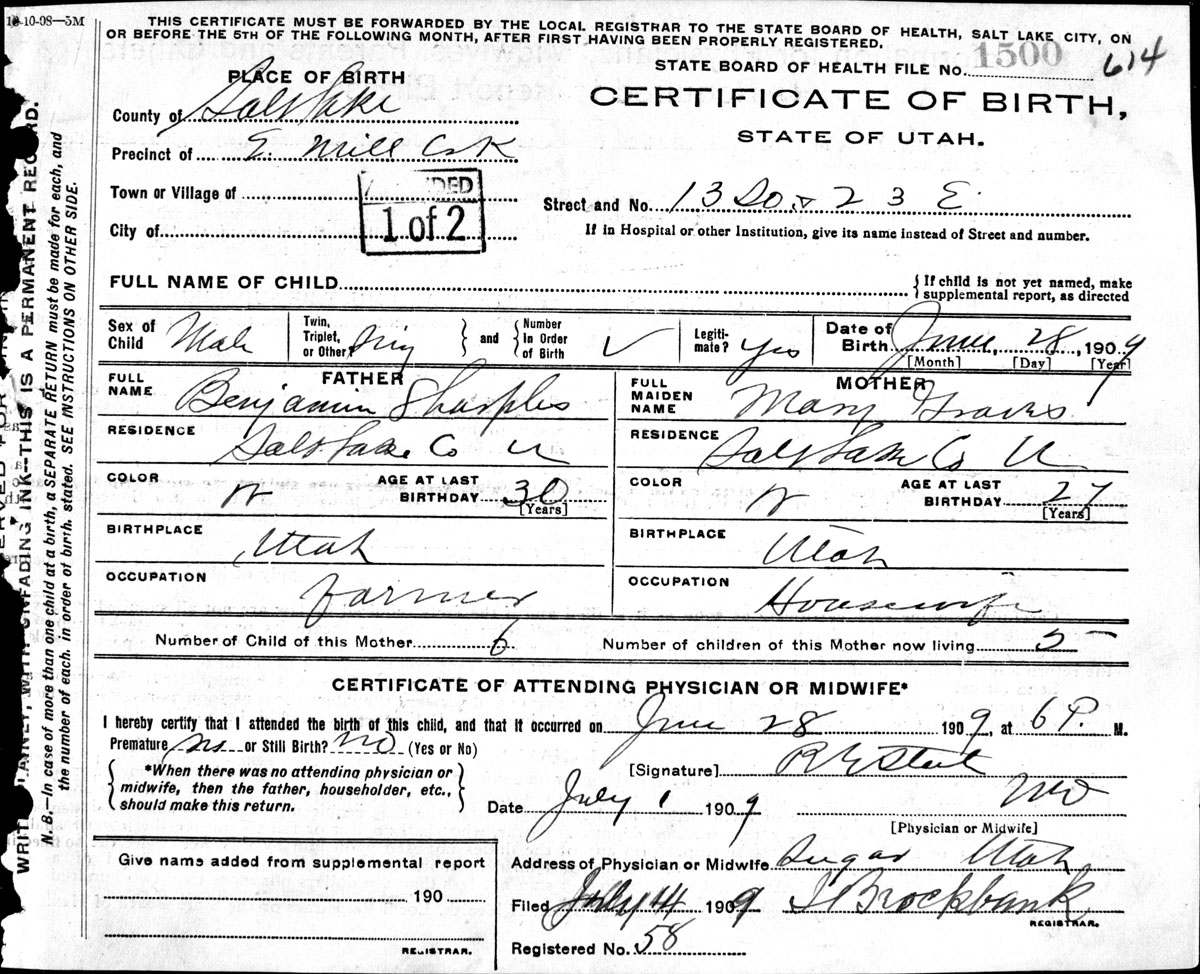 10-10-08—5M
THIS CERTIFICATE MUST BE FORWARDED BY THE LOCAL REGISTRAR TO THE STATE BOARD OF HEALTH, SALT LAKE CITY, ON
OR BEFORE THE 5TH OF THE FOLLOWING MONTH, AFTER FIRST HAVING BEEN PROPERLY REGISTERED.
STATE BOARD OF HEALTH FILE NO. 1500 614
PLACE OF BIRTH
CERTIFICATE OF BIRTH,
STATE OF UTAH.
County of Salt Lake
Precinct of E. Mill Crk
Town or Village of
1 of 2
Street and No. 13 So. & 23 E
City of
If in Hospital or other Institution, give its name instead of Street and number.
FULL NAME OF CHILD
{If child is not yet named, make supplemental report, as directed
Sex of Child Male Twin, Triplet, or Other? and Number In Order of Birth ✓ Legitimate? Yes Date of Birth June, 28, 1909
[Month] [Day] [Year]
FATHER MOTHER
FULL NAME Benjamin Sharples FULL MAIDEN NAME Mary Graves
RESIDENCE Salt Lake Co U RESIDENCE Salt Lake Co U
COLOR W AGE AT LAST BIRTHDAY 30 [Years] COLOR W AGE AT LAST BIRTHDAY 27 [Years]
BIRTHPLACE Utah BIRTHPLACE Utah
OCCUPATION Farmer OCCUPATION Housewife
Number of Child of this Mother 6 Number of children of this Mother now living 5
CERTIFICATE OF ATTENDING PHYSICIAN OR MIDWIFE*
I hereby certify that I attended the birth of this child, and that it occurred on June 28 1909, at 6 P. M.
Premature no or Still Birth? no (Yes or No)
*When there was no attending physician or midwife, then the father, householder, etc., should make this return.
[Signature] R E Steel
Date July 1 1909 MD
[Physician or Midwife]
Give name added from supplemental report
190
REGISTRAR.
Address of Physician or Midwife Sugar Utah
Filed July 14 1909 Brockbank
REGISTRAR.
Registered No. 58
N. B.—In case of more than one child at a birth, a SEPARATE RETURN must be made for each, and
the number of each, in order of birth, stated. SEE INSTRUCTIONS ON OTHER SIDE.
INK—THIS IS A PERMANENT RECORD.